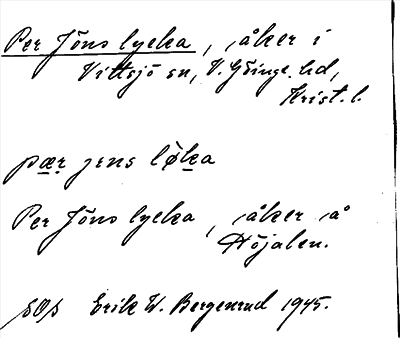 Per Jöns lycka, åker i
Vittsjö sn, V. Göinge hd,
Krist. l.
pær jens løka
Per Jöns lycka, åker å
Höjalen.
sOs Erik W. Bergenrud 1945.